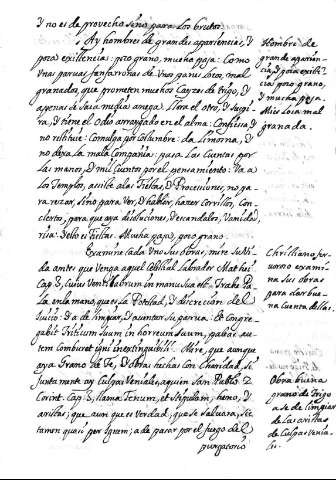 y no es de provecho sino para los brutos.
Ay hombres de grandes apariencias, y
poca existencia: poco grano, mucha paja: Como
unas parvas fanfarronas de unos panes locos, mal
granados, que prometen muchos Cayzes de trigo, y
apenas a saca media anega. Llora el otro, y suspi-
ra, y tiene el odio arraygado en el alma: Confiesa y no
restituie: Comulga por costumbre: da limosna, y
no dexa la mala Compañia: pasa las Cuentas por
las manos, y mil Cuentos por el pensamiento: Va a
los Templos, assiste a las Fiestas, y Procesiones, no pa-
ra rezar, sino para Ver, y hablar, hazer Corrillos, Con-
cierto, para que aya disensiones, escandalos, Vanida-
Mucha paja, poco grano.
Examine cada Uno sus obras, mire su Vi-
da antes que Venga aquel Celestial Labrador Mathei
Cap. 3, cuius Ventilabrum in manu sua etc. Trahe Pa-
la en la mano, que es la Potestad, y discrecion del
Juicio: y a de limpiar, y aventar su parva: et Congre-
gabit Triticum suum in horreum suum, paleas au-
tem comburet igni inextinguibili. Mire, que aunque
aya Grano de Fe, y obras hechas con Charidad, si
Juntamente ay Culpas Veniales, a quien San Pablo
Corint. Cap. 3, llama fenum, et stipulam, heno, y
aristas; que, aun que es Verdad, que se salvara, sic
tamen quasi per ignem; a de pasar por el fuego del
purgatorio
Hombre de
grande aparien-
cia, y poca exist-
cia, poco grano,
y mucha paja.
Mies loca mal
granada.
Christiano fer-
voroso exami-
na sus obras
para dar bue-
na Cuenta dellas.
Obra buena
grano de trigo
a se de limpiar
de las aristas
de Culpas Venia-
les.